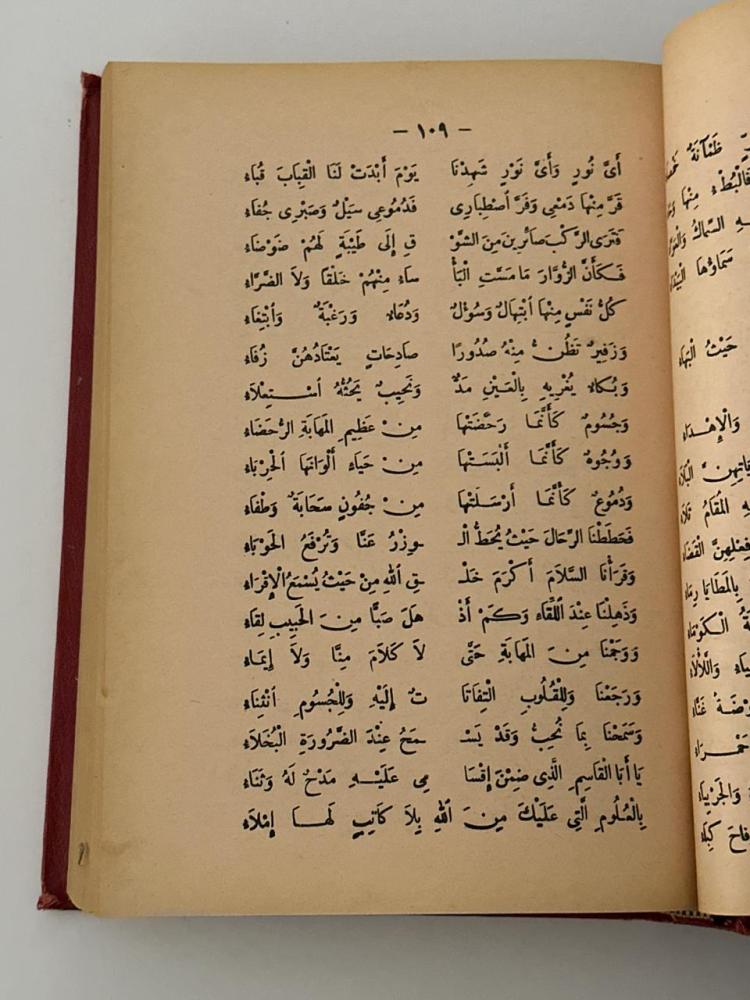 — ١٠٩ —
أَىُّ نُورٍ وَأَىُّ نَوْرٍ شَهِدْنَا يَوْمَ أَبْدَتْ لَنَا الْقِبَابَ قُبَاءُ
قَرَّ مِنْهَا دَمْعِى وَفَرَّ اصْطِبَارِى فَدُمُوعِى سَيْلٌ وَصَبْرِى جُفَاءُ
فَتَرَى الرَّكْبَ طَائِرِينَ مِنَ الشَّوْ قِ إِلَى طَيْبَةٍ لَهُمْ ضَوْضَاءُ
فَكَأَنَّ الزُّوَّارَ مَا مَسَّتِ الْبَأْ سَاءُ مِنْهُمْ خَلْقًا وَلاَ الضَّرَّاءُ
كُلُّ نَفْسٍ مِنْهَا ابْتِهَالٌ وَسُؤْلٌ وَدُعَاءٌ وَرَغْبَةٌ وَابْتِغَاءُ
وَزَفِيرٌ تَظُنُّ مِنْهُ صُدُورًا صَادِحَاتٍ يَعْتَادُهُنَّ زُقَاءُ
وَبُكَاءٌ يُغْرِيهِ بِالْعَيْنِ مَدٌّ وَنَحِيبٌ يَحُثُّهُ اسْتِعْلاَءُ
وَجُسُومٌ كَأَنَّمَا رَحَضَتْهَا مِنْ عَظِيمِ الْمَهَابَةِ الرُّحَضَاءُ
وَوُجُوهٌ كَأَنَّمَا أَلْبَسَتْهَا مِنْ حَيَاءٍ أَلْوَانَهَا الْحِرْبَاءُ
وَدُمُوعٌ كَأَنَّمَا أَرْسَلَتْهَا مِنْ جُفُونٍ سَحَابَةٌ وَطْفَاءُ
فَحَطَطْنَا الرِّحَالَ حَيْثُ يُحَطُّ الْـ ـوِزْرُ عَنَّا وَتُرْفَعُ الْحَوْبَاءُ
وَقَرَأْنَا السَّلاَمَ أَكْرَمَ خَلْـ ـقِ اللهِ مِنْ حَيْثُ يُسْمَعُ الْإِقْرَاءُ
وَذَهِلْنَا عِنْدَ اللِّقَاءِ وَكَمْ أَذْ هَلَ صَبًّا مِنَ الْحَبِيبِ لِقَاءُ
وَوَجَمْنَا مِنَ الْمَهَابَةِ حَتَّى لاَ كَلاَمٌ مِنَّا وَلاَ إِيمَاءُ
وَرَجَعْنَا وَلِلْقُلُوبِ الْتِفَاتَا تٌ إِلَيْهِ وَلِلْجُسُومِ انْثِنَاءُ
وَسَمَحْنَا بِمَا نُحِبُّ وَقَدْ يَسْـ ـمَحُ عِنْدَ الضَّرُورَةِ الْبُخَلاَءُ
يَا أَبَا الْقَاسِمِ الَّذِى ضِمْنَ إِقْسَا مِى عَلَيْهِ مَدْحٌ لَهُ وَثَنَاءُ
بِالْعُلُومِ الَّتِى عَلَيْكَ مِنَ اللهِ بِلاَ كَاتِبٍ لَهَا إِمْلاَءُ